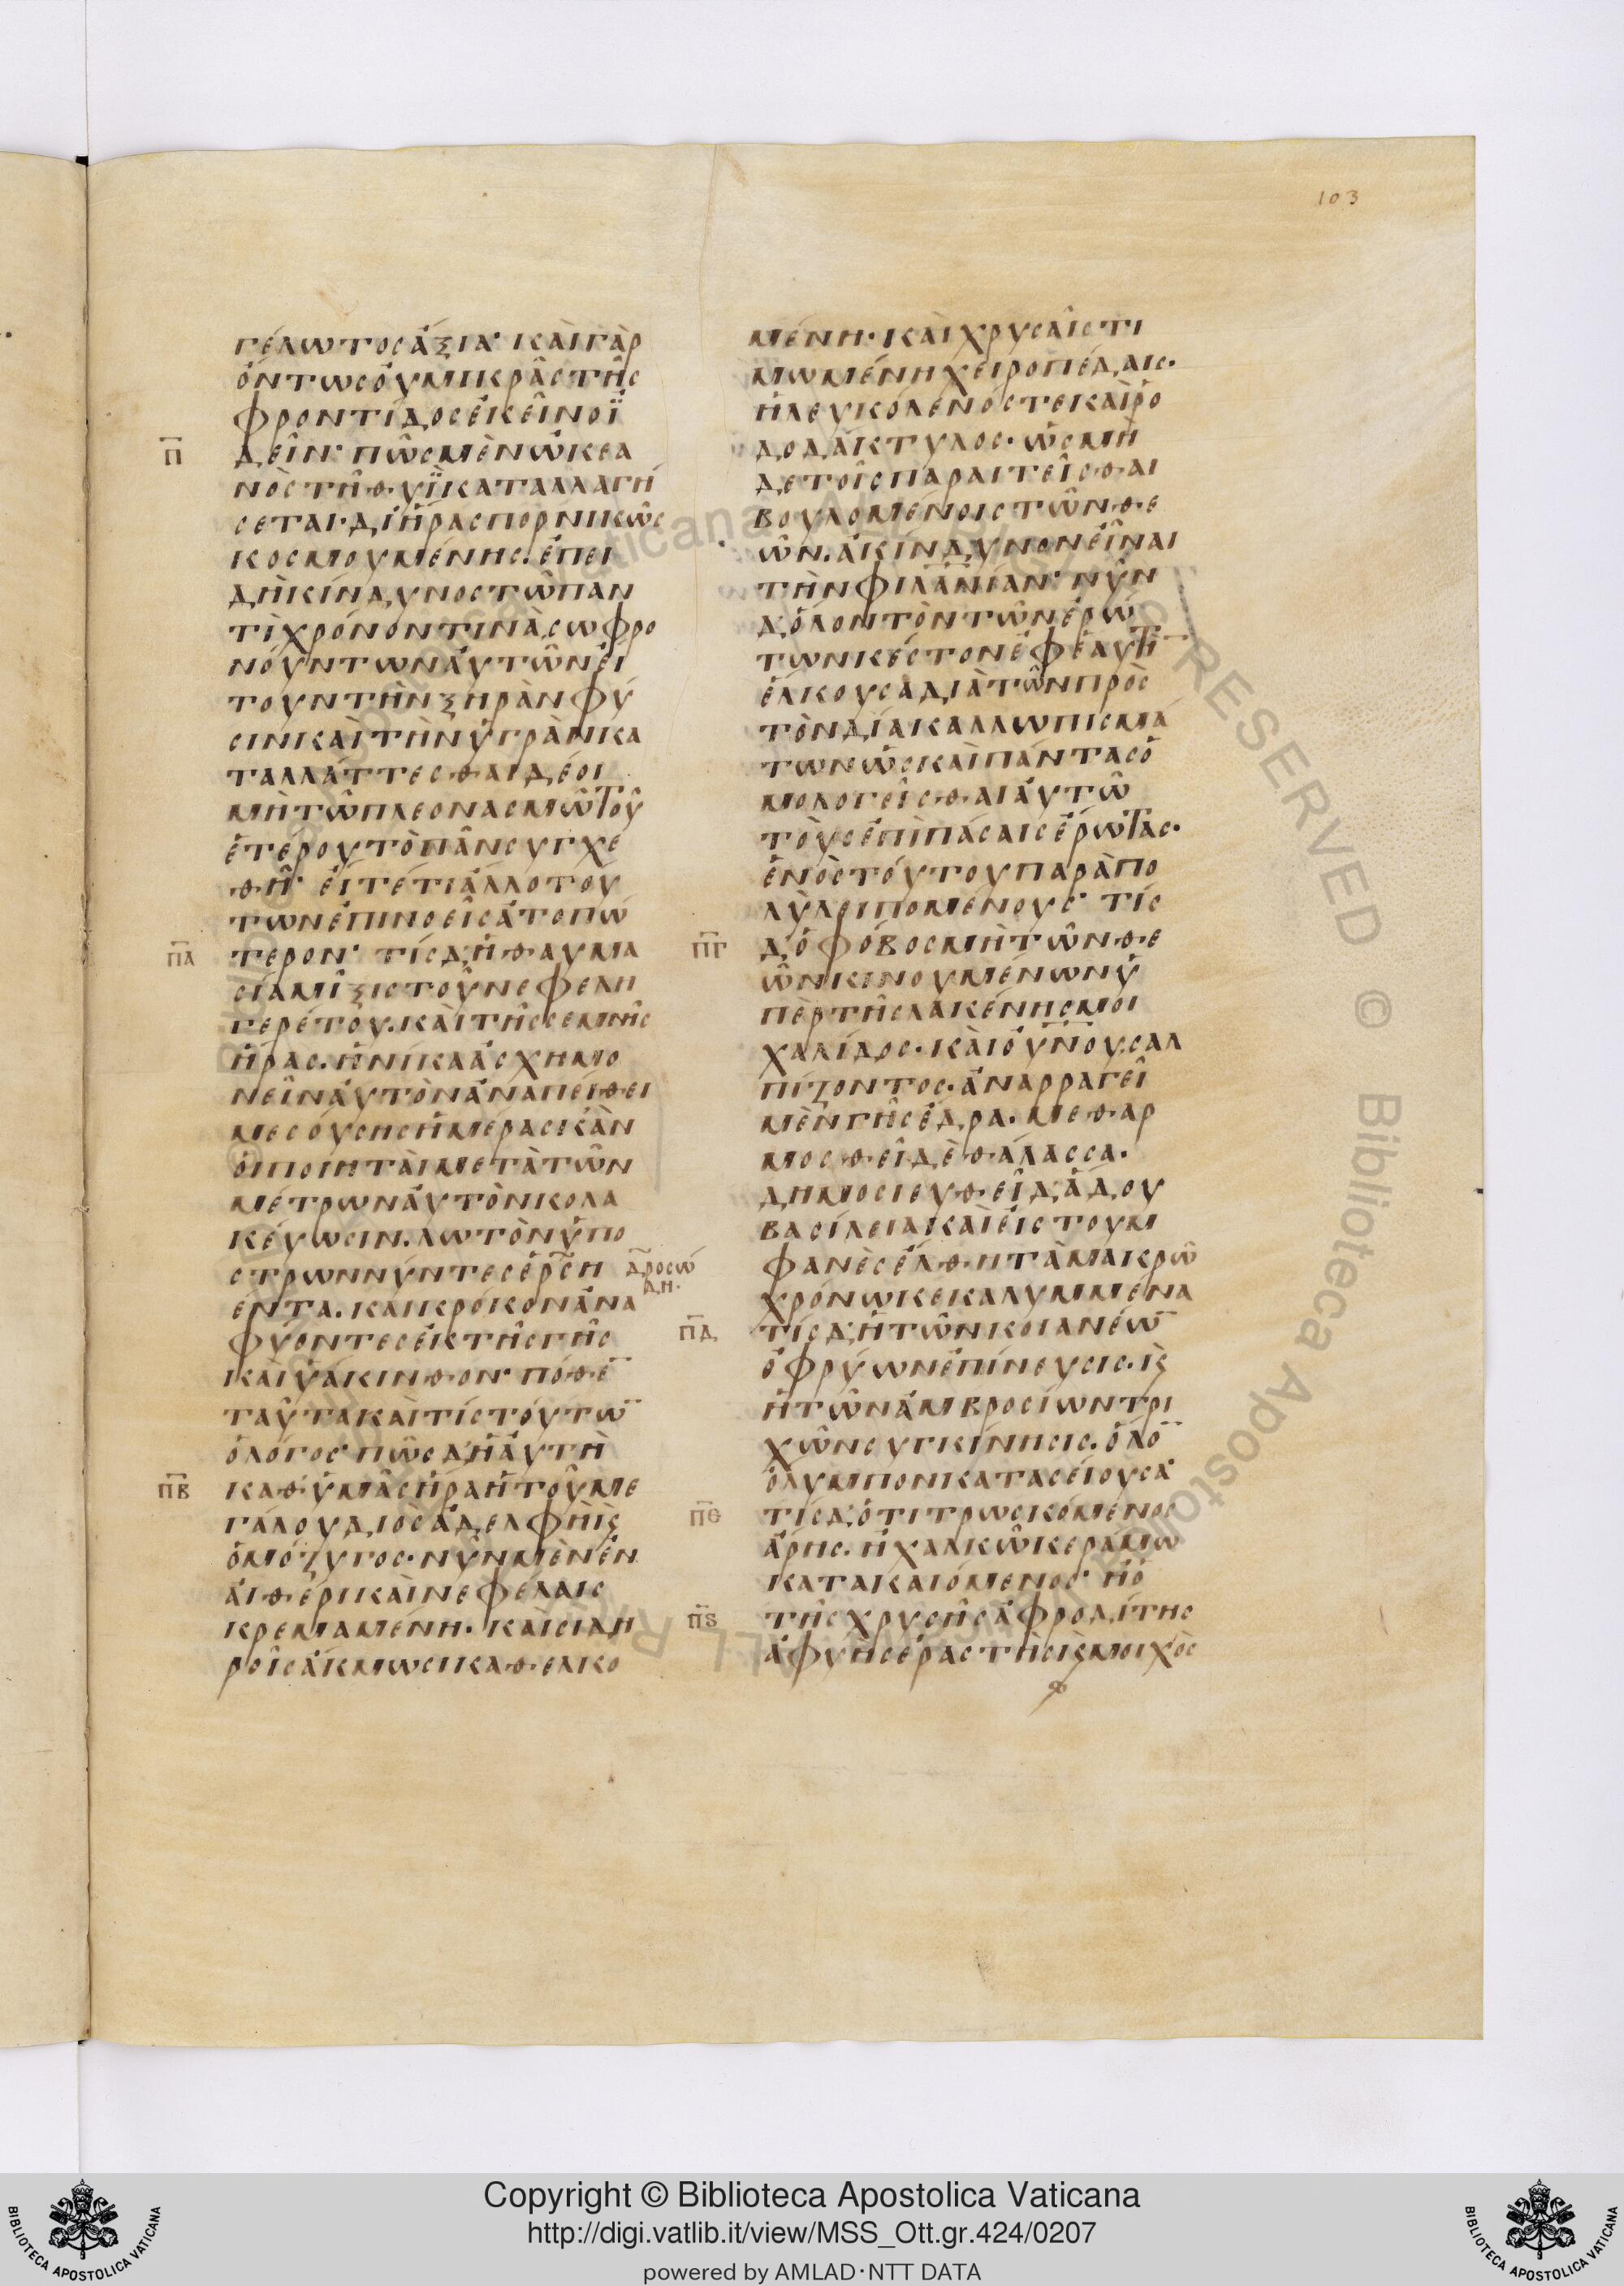 103
γέλωτος ἄξια· καὶ γὰρ
ὄντως οὐ μικρᾶς τῆς
φροντίδος ἐκεῖνο ἰ
π̅
δεῖν· πῶς μὲν ὠκεα
νὸς τηθύϊ καταλλαγή
σεται· δι' ἥρας πορνικῶς
κοσμουμένης. ἐπει
δὴ κίνδυνος τῶ παν
τὶ χρόνον τινὰ, σωφρο
νούντων αὐτῶν εἰ
τουν τὴν ξηρὰν φύ
σιν καὶ τὴν ὑγρὰν κα
ταλλάττεσθαι δέοι
μὴ τῶ πλεονασμῶ τοῦ
ἑτέρου τὸ πᾶν συγχε
θῆ· εἴτέ τι ἄλλο τού
των ἐπινοεῖς ἀτοπώ
π̅α̅
τερον· τίς δ' ἡ θαυμα
σία μῖξις τοῦ νεφελη
γερέτου. καὶ τῆς σεμνῆς
ἥρας. ἡνίκα ἀσχημο
νεῖν αὐτὸν ἀναπείθει
μεσούσης ἡμέρας κἂν
οἱ ποιηταὶ μετὰ τῶν
μέτρων αὐτὸν κολα
κεύωσιν. λωτὸν ὑπο
στρωννύντες ἑρσή
δροσώ
δη·
εντα. καὶ κρόκον ἀνα
φύοντες ἐκ τῆς γῆς
καὶ ὑάκινθον· πόθε̅
ταῦτα καὶ τίς τούτω̅
ὁ λόγος· πῶς δ' ἡ αὐτὴ
π̅β̅
καθ' ὑμᾶς ἥρα ἡ τοῦ με
γάλου διὸς ἀδελφὴ ϗ
ὁμόζυγος· νῦν μὲν ἐν
αἰθέρι καὶ νεφέλαις
κρεμαμένη· καὶ σιδη
ροῖς ἄκμωσι καθελκο
μένη· καὶ χρυσαῖς τι
μωμένη χειροπέδαις·
ἡ λευκόλενός τε καὶ ῥο
δοδάκτυλος· ὡς μὴ
δὲ τοῖς παραιτεῖσθαι
βουλομένοις τῶν θε
ῶν. ἀκίνδυνον εἶναι
τὴν φιλα̅ν̅ίαν· νῦν
δ' ὅλον τὸν τῶν ἐρώ
των κεστον ἐφ' ἑαυτὴ̅
ἕλκουσα διὰ τῶν πρὸς
τὸν δία καλλωπισμά
των ὡς καὶ πάντας ὁ
μολογεῖσθαι αὐτῶ
τοὺς ἐπὶ πάσαις ἔρωτας·
ἑνὸς τούτου παρὰ πο
λὺ λειπομένους· τίς
π̅γ̅
δ' ὁ φόβος μὴ τῶν θε
ῶν κινουμένων ὑ
πὲρ τῆς λακένης μοι
χαλίδος· καὶ ο̅υ̅ν̅ο̅υ̅ σαλ
πίζοντος· ἀναρραγεῖ
μὲν γῆς ἕδρα. μεθαρ
μοσθεῖ δὲ θάλασσα.
δημοσιευθεῖ δ' ἅδου
βασίλεια καὶ εἰς τουμ
φανὲς ἔλθη τὰ μακρῶ
χρόνω κεκαλυμμένα
π̅δ̅
τίς δ' ἡ τῶν κοιανέω̅
ὀφρύων ἐπίνευσις. ϗ
ἡ τῶν ἀμβροσίων τρι
χῶν συγκίνησις. ὅλο̅
ὄλυμπον κατασείουσα·
π̅ε̅
τίς δ' ὅτι τρωσκόμενος
ἄρης. ἢ χαλκῶ κεράμω
κατακαιόμενος· ἢ ὁ
π̅ς̅
τῆς χρυσῆς ἀφροδίτης
ἀφυὴς ἐραστὴς ϗ μοιχὸς
Copyright © Biblioteca Apostolica Vaticana
http://digi.vatlib.it/view/MSS_Ott.gr.424/0207
powered by AMLAD·NTT DATA
BIBLIOTECA APOSTOLICA VATICANA
BIBLIOTECA APOSTOLICA VATICANA